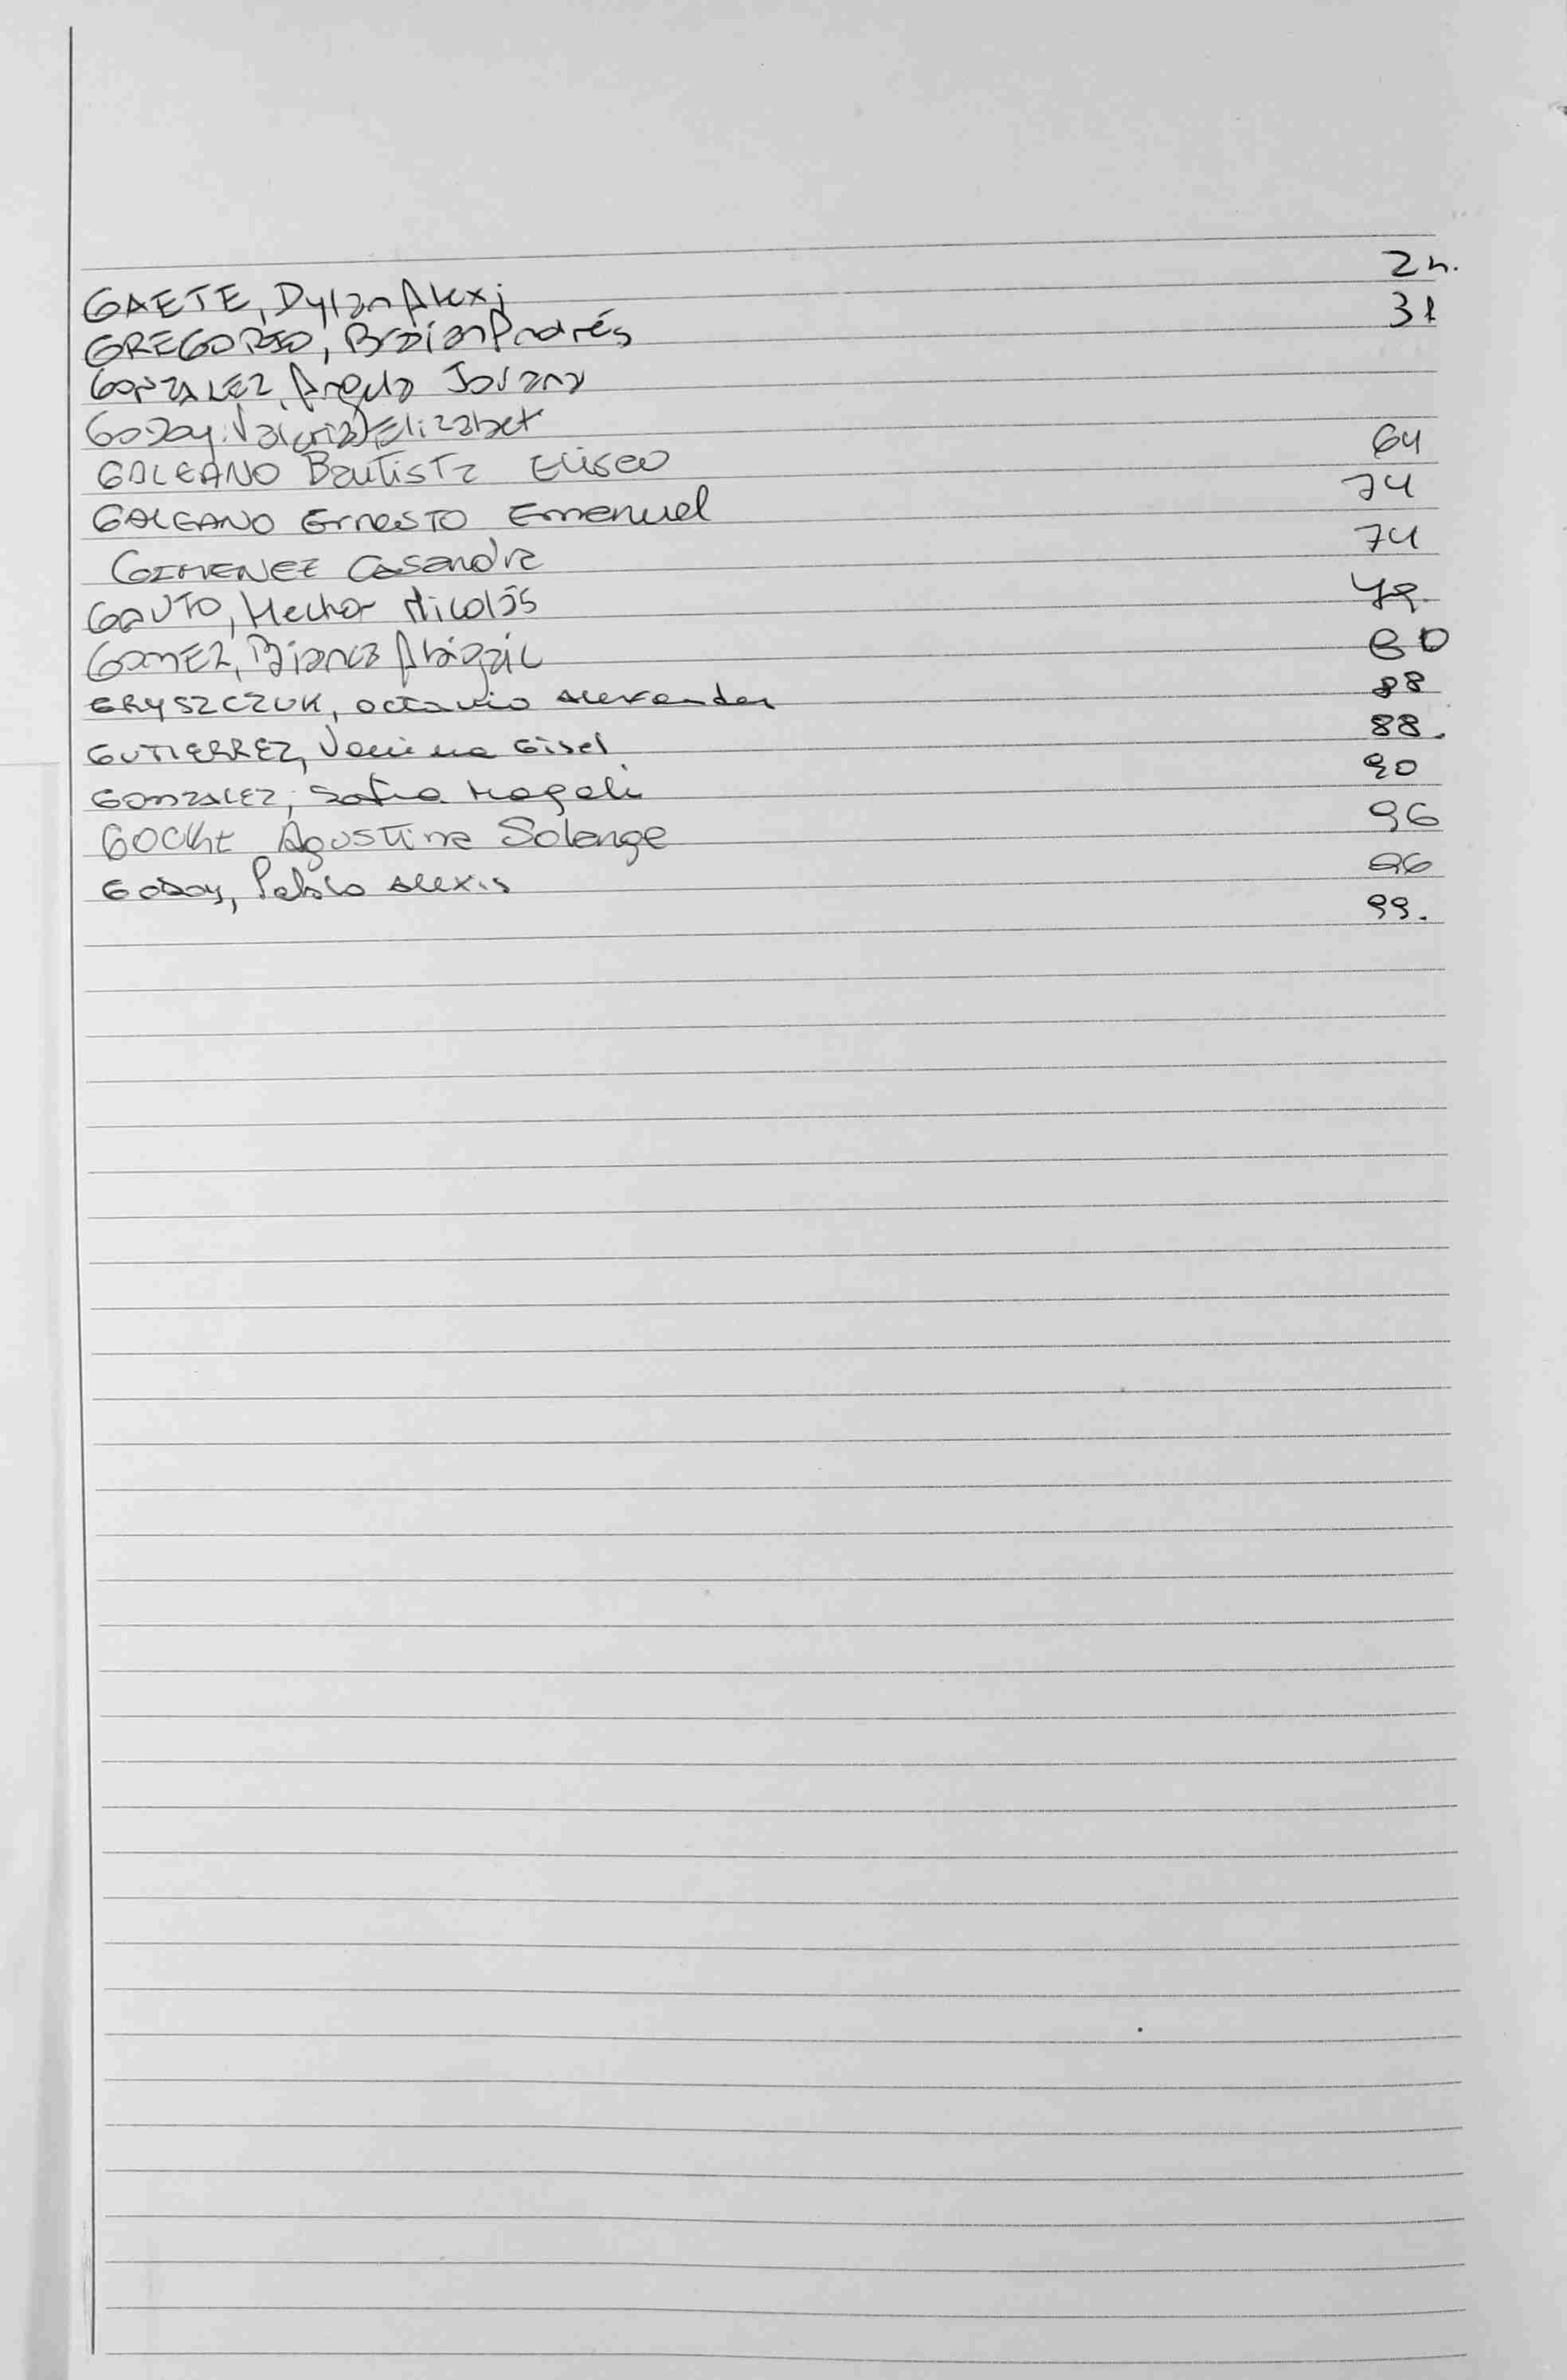 GAETE, Dylan Alexi 2
GREGORIO, Braian Andrés 31
GONZALEZ, Angela Jovana
Godoy. Valeria Elizabet
GALEANO Bautista Eliseo 64
GALEANO Ernesto Emanuel 74
GIMENEZ Casandra 74
GAUTO, Hector Nicolás 79.
GOMEZ, Bianca Abigail 80
GRYSZCZUK, Octavio Alexander 88
GUTIERREZ, Vanina Gisel 88.
GONZALEZ, Sofia Magali 90
GOCHt Agustina Solange 96
GODOY, Pablo Alexis 96
99.